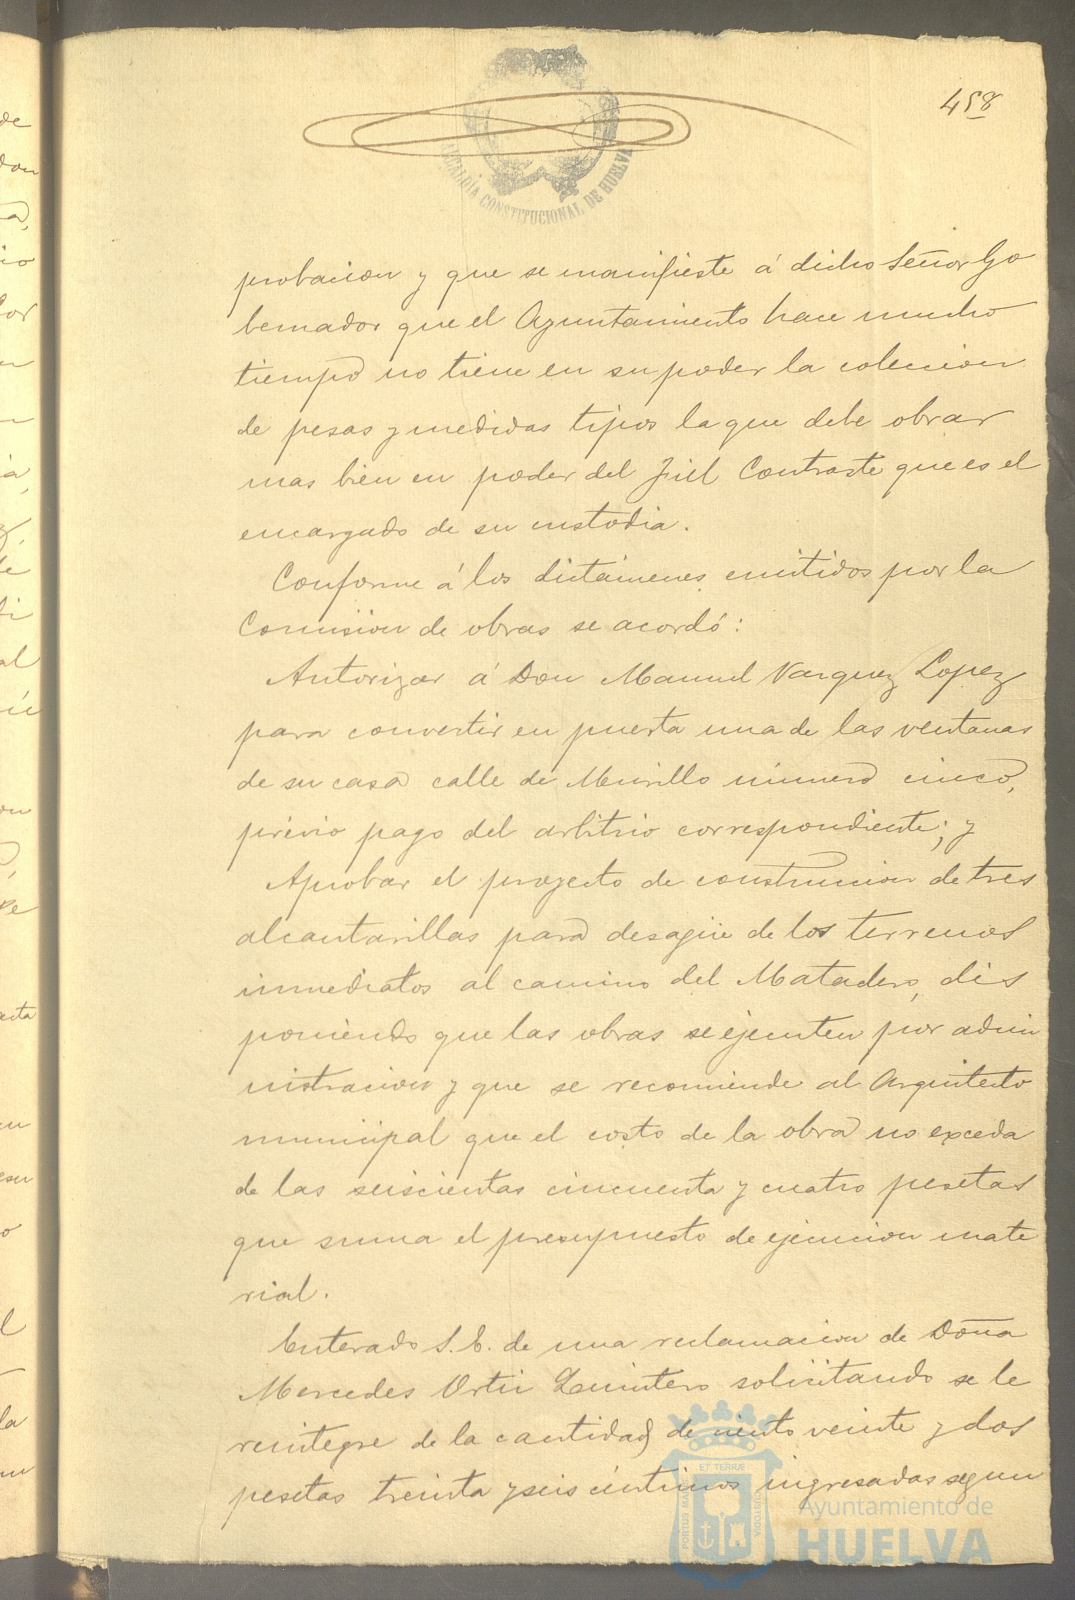 458
ALCALDÍA CONSTITUCIONAL DE HUELVA
probacion y que se manifieste á dicho Señor Go
bernador que el Ayuntamiento hace mucho
tiempo no tiene en su poder la coleccion
de pesas y medidas tipos la que debe obrar
mas bien en poder del Fiel Contraste que es el
encargado de su custodia.
Conforme á los dictámenes emitidos por la
Comision de obras se acordó:
Autorizar á Don Manuel Vazquez Lopez
para convertir en puerta una de las ventanas
de su casa calle de Murillo número cinco,
prévio pago del arbitrio correspondiente; y
Aprobar el proyecto de construccion de tres
alcantarillas para desagüe de los terrenos
inmediatos al camino del Matadero, dis
poniendo que las obras se ejecuten por admi
nistracion y que se recomiende al Arquitecto
municipal que el costo de la obra no exceda
de las seiscientas cincuenta y cuatro pesetas
que suma el presupuesto de ejecucion mate
rial.
Enterado S. E. de una reclamacion de Doña
Mercedes Ortiz Quintero solicitando se le
reintegre de la cantidad de ciento veinte y dos
pesetas treinta y seis céntimos ingresadas segun
PORTUS MARIS ET TERRÆ CUSTODIA
Ayuntamiento de
HUELVA